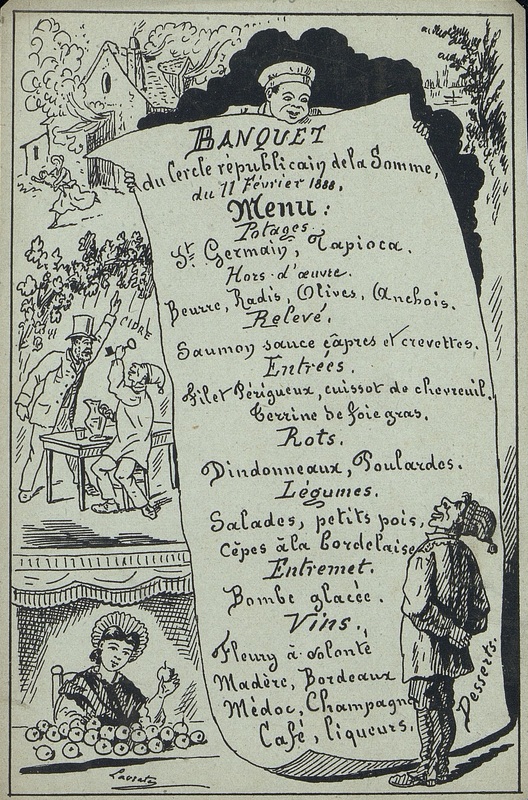 BANQUET
du Cercle républicain de la Somme,
du 11 Février 1888.
Menu:
Potages.
St. Germain, Tapioca.
Hors-d'œuvre.
Beurre, Radis, Olives, Anchois.
Relevé.
Saumon sauce câpres et crevettes.
Entrées.
Filet Périgueux, cuissot de chevreuil.
Terrine de foie gras.
Rots.
Dindonneaux, Poulardes.
Légumes.
Salades, petits pois,
Cêpes à la bordelaise
Entremet.
Bombe glacée.
Vins.
Fleury à volonté
Madère, Bordeaux
Médoc, Champagne
Café, liqueurs.
Desserts.
CIDRE